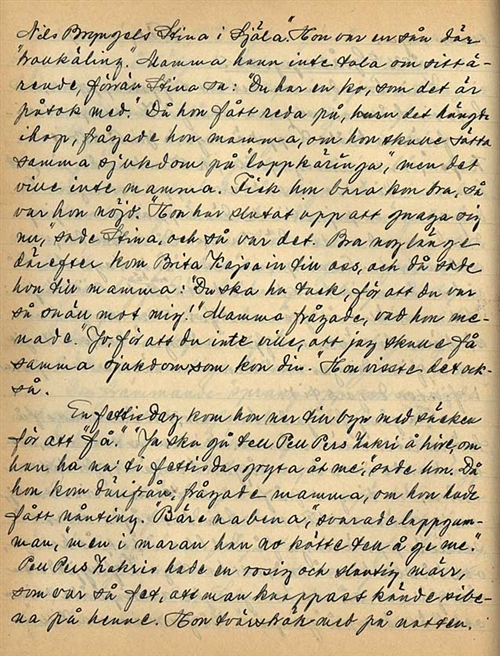 Nils Bryngels Stina i Själa". Hon var en sån där
"trollkäling". Mamma hann inte tala om sitt ä-
rende, förrän Stina sa: "Du har en ko, som det är
påtok med." Då hon fått reda på, huru det hängde
ihop, frågade hon mamma, om hon skulle sätta
samma sjukdom på "lappkäringa", men det
ville inte mamma. Fick hon bara kon bra, så
var hon nöjd. "Hon har slutat upp att gnaga sig
nu," sade Stina, och så var det. Bra nog länge
därefter kom Brita Kajsa in till oss, och då sade
hon till mamma: "Du ska ha tack, för att du var
så snäll mot mig!" Mamma frågade, vad hon me-
nade. "Jo, för att du inte ville, att jag skulle få
samma sjukdom som kon din." Hon visste det ock-
så.
En fettisdag kom hon ner till byn med säcken
för att "få." "Ja ska gå tell Pell Pers Zakri å höre, om
han ha na' ti fettisdasgryta åt me," sade hon. Då
hon kom därifrån, frågade mamma, om hon hade
fått nånting. "Bäre nabena," svarade lappgum-
man, "men i maran han no kötte ten å ge me."
Pell Pers Zakris hade en rosig och slantig märr,
som var så fet, att man knappast kände sibe-
na på henne. Hon tvärstök med på natten.